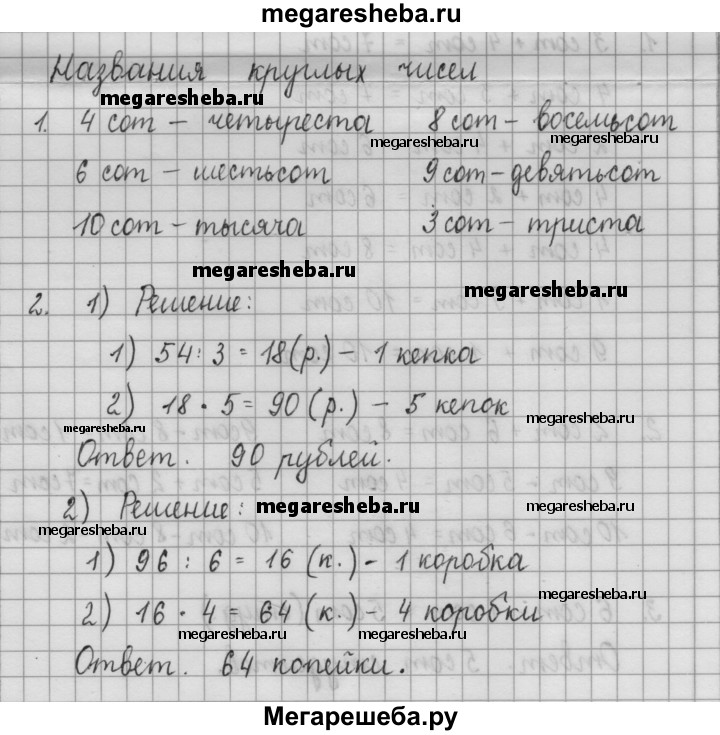 megaresheba.ru
Названия круглых чисел
megaresheba.ru
1. 4 сот – четыреста 8 сот – восемьсот
megaresheba.ru megaresheba.ru
6 сот – шестьсот 9 сот – девятьсот
10 сот – тысяча 3 сот – триста
megaresheba.ru
megaresheba.ru
2. 1) Решение:
1) 54 : 3 = 18 (р.) – 1 кепка
2) 18 · 5 = 90 (р.) – 5 кепок
megaresheba.ru megaresheba.ru
Ответ. 90 рублей.
2) Решение:
megaresheba.ru megaresheba.ru
megaresheba.ru
1) 96 : 6 = 16 (к.) – 1 коробка
megaresheba.ru
2) 16 · 4 = 64 (к.) – 4 коробки
megaresheba.ru megaresheba.ru
Ответ. 64 копейки.
Мегарешеба.ру